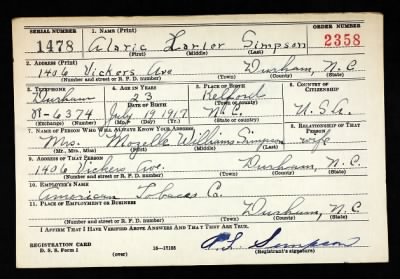 SERIAL NUMBER 1. NAME (Print) ORDER NUMBER
1478 Alaric Simpson 2358
(First) (Middle) (Last)
2. ADDRESS (Print)
1406 Vickers Ave Durham, N.C.
(Number and street or R. F. D. number) (Town) (County) (State)
3. TELEPHONE 4. AGE IN YEARS 5. PLACE OF BIRTH 6. COUNTRY OF CITIZENSHIP
Durham 23
DATE OF BIRTH (Town or county)
July 1917 N.C. U.S.A.
(Exchange) (Number) (Mo.) (Day) (Yr.) (State or country)
7. NAME OF PERSON WHO WILL ALWAYS KNOW YOUR ADDRESS 8. RELATIONSHIP OF THAT PERSON
Mrs. Mozelle Williams Simpson wife
(Mr., Mrs., Miss) (First) (Middle) (Last)
9. ADDRESS OF THAT PERSON
1406 Vickers Ave. Durham, N.C.
(Number and street or R. F. D. number) (Town) (County) (State)
10. EMPLOYER'S NAME
American Tobacco Co.
11. PLACE OF EMPLOYMENT OR BUSINESS
Durham, N.C.
(Number and street or R. F. D. number) (Town) (County) (State)
I AFFIRM THAT I HAVE VERIFIED ABOVE ANSWERS AND THAT THEY ARE TRUE.
REGISTRATION CARD
D. S. S. Form 1 (over) Simpson
(Registrant's signature)